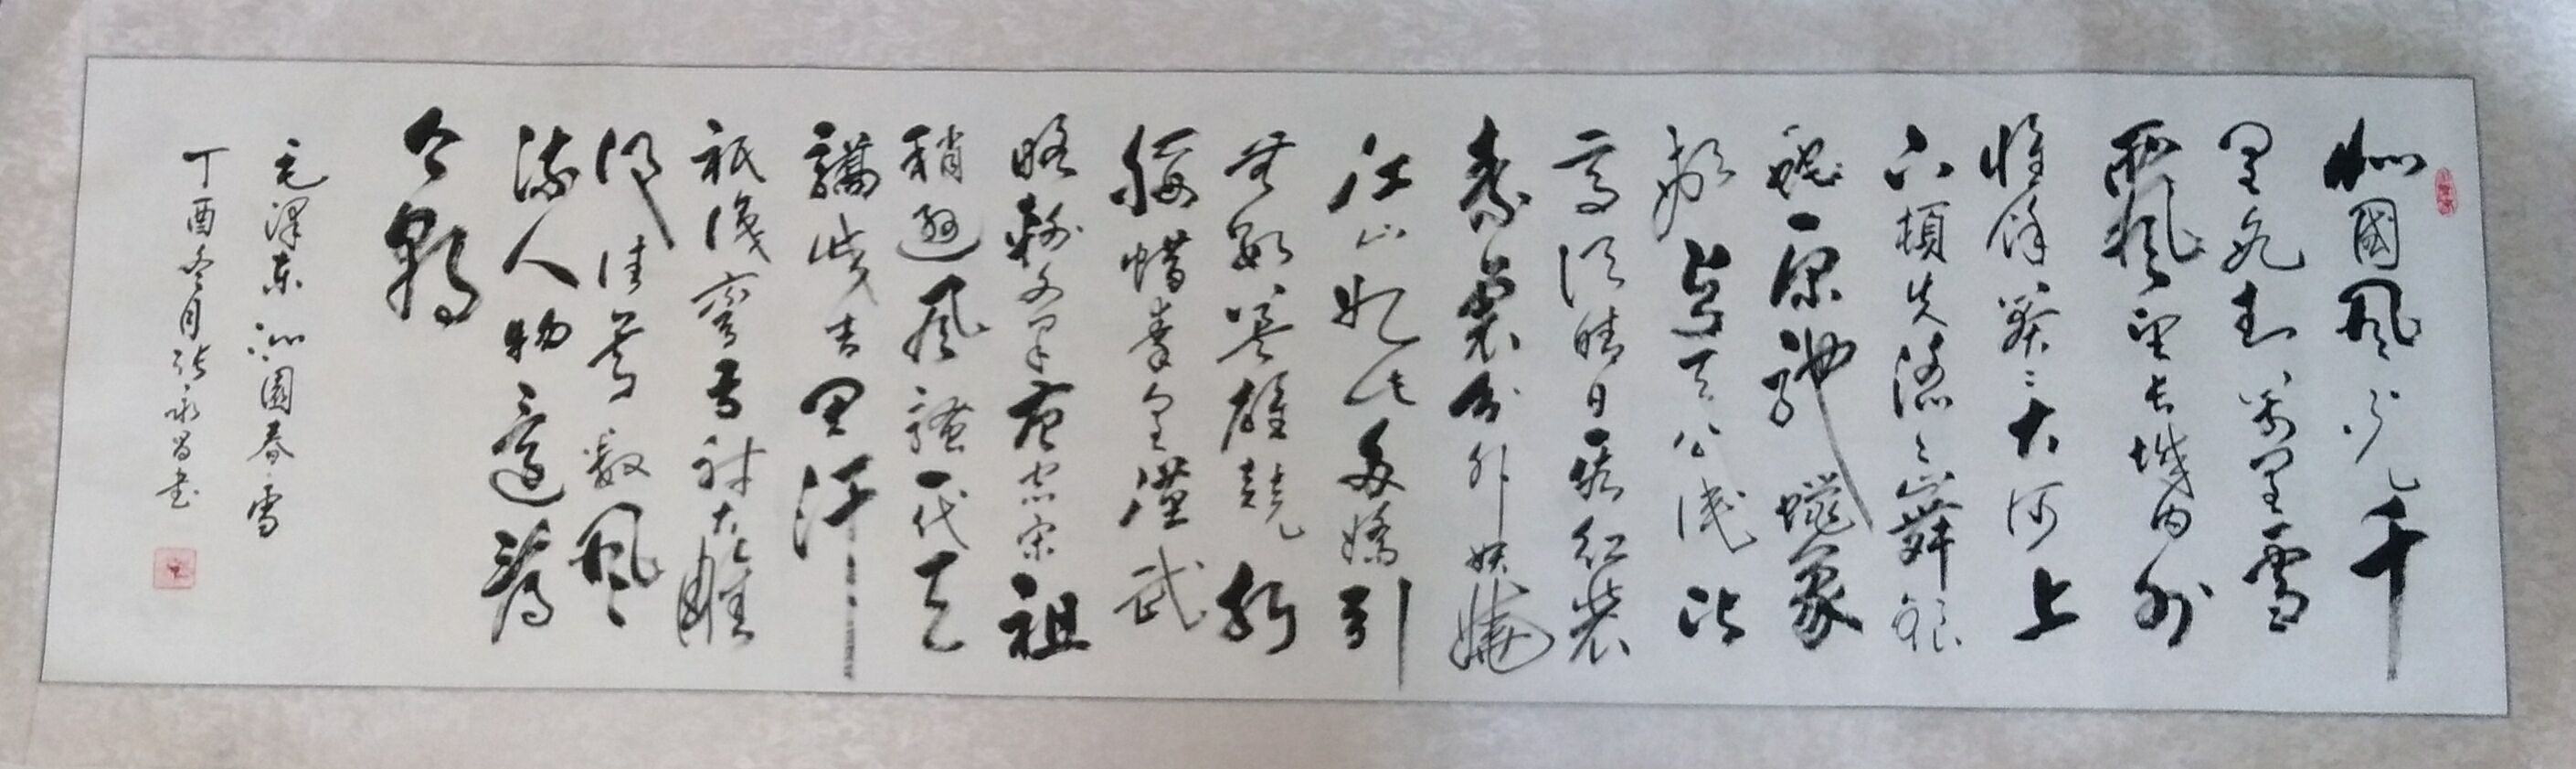 北國風光千
里冰封萬里雪
飄望長城内外
惟餘莽々大河上
下頓失滔々山舞銀
蛇原馳蠟象
欲與天公試比
高須晴日看紅裝
素裹分外妖嬈
江山如此多嬌引
無數英雄競折
腰惜秦皇漢武
略輸文采唐宗宋祖
稍遜風騷一代天
驕成吉思汗
祇識彎弓射大雕
俱往矣數風
流人物還看
今朝
毛澤東沁園春雪
丁酉冬月張永昌書